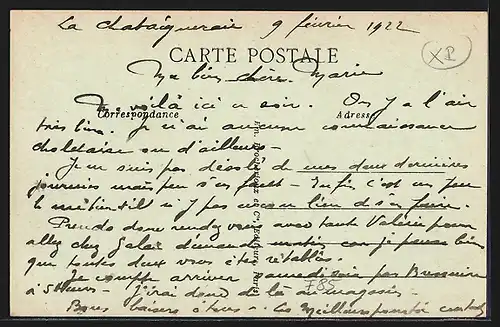 La Châtaigneraie 9 février 1922
CARTE POSTALE
XP
Ma bien chère Marie
Me voilà ici ce soir. On y a l'air
Correspondance
Adresse
très bien. Je n'ai aucune connaissance
choletaise ou d'ailleurs -
Je ne suis pas désolé de mes deux dernières
journées mais peu s'en faut - Enfin c'est un peu
le métier il n'y pas au lieu de s'en faire.
Prends donc rendez vous avec tante Valérie pour
aller chez Galas demande matin car je pense bien
que toutes deux vous êtes rétablies.
Je compte arriver samedi soir par Bressuire
à 5 heures - J'irai donc de là au magasin -
F85
Bons baisers à tous - Les meilleurs pour toi